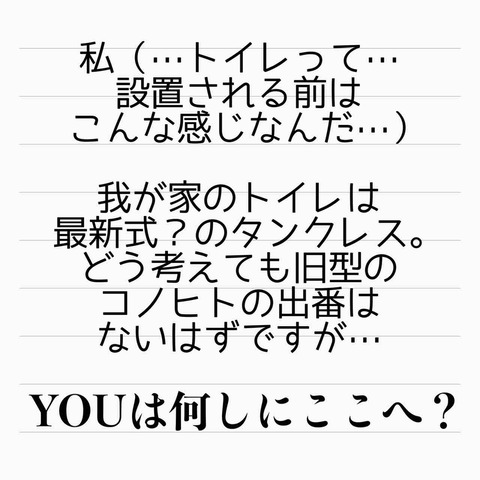 私（…トイレって…
設置される前は
こんな感じなんだ…）
我が家のトイレは
最新式？のタンクレス。
どう考えても旧型の
コノヒトの出番は
ないはずですが…
YOUは何しにここへ？